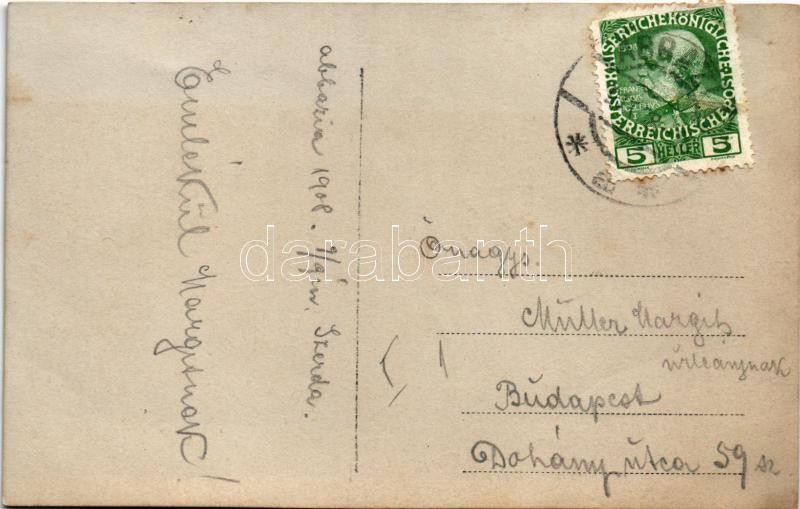 Emlékül Margitnak!
abbazia 1908. 9/9 ín. Szerda.
Önagys.
Müller Margit
úrleánynak
Budapest
Dohány utca 59 sz
KAISERLICHE KÖNIGLICHE
ÖSTERREICHISCHE POST
5 HELLER 5
darabanth